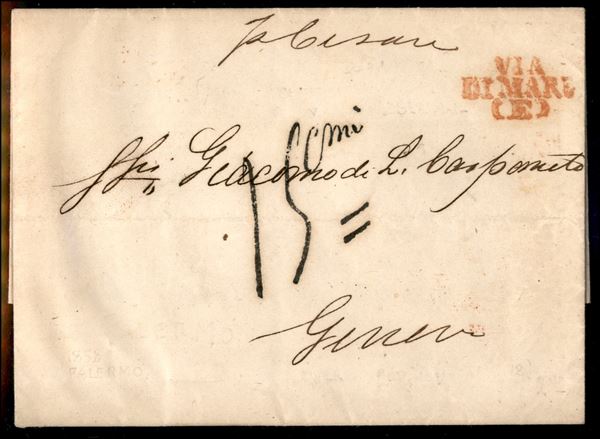 p. Cesare
VIA
DI MARE
(E)
Sig. Giacomo di L. Carpaneto
15 cmi
Genova
1858
PALERMO